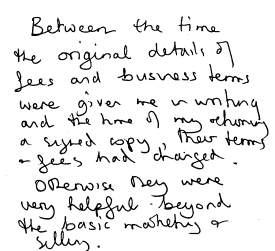 Between the time
the original details of
fees and business terms
were given me in writing
and the time of my returning
a signed copy, their terms
& fees had changed.
Otherwise they were
very helpful beyond
the basic marketing &
selling.